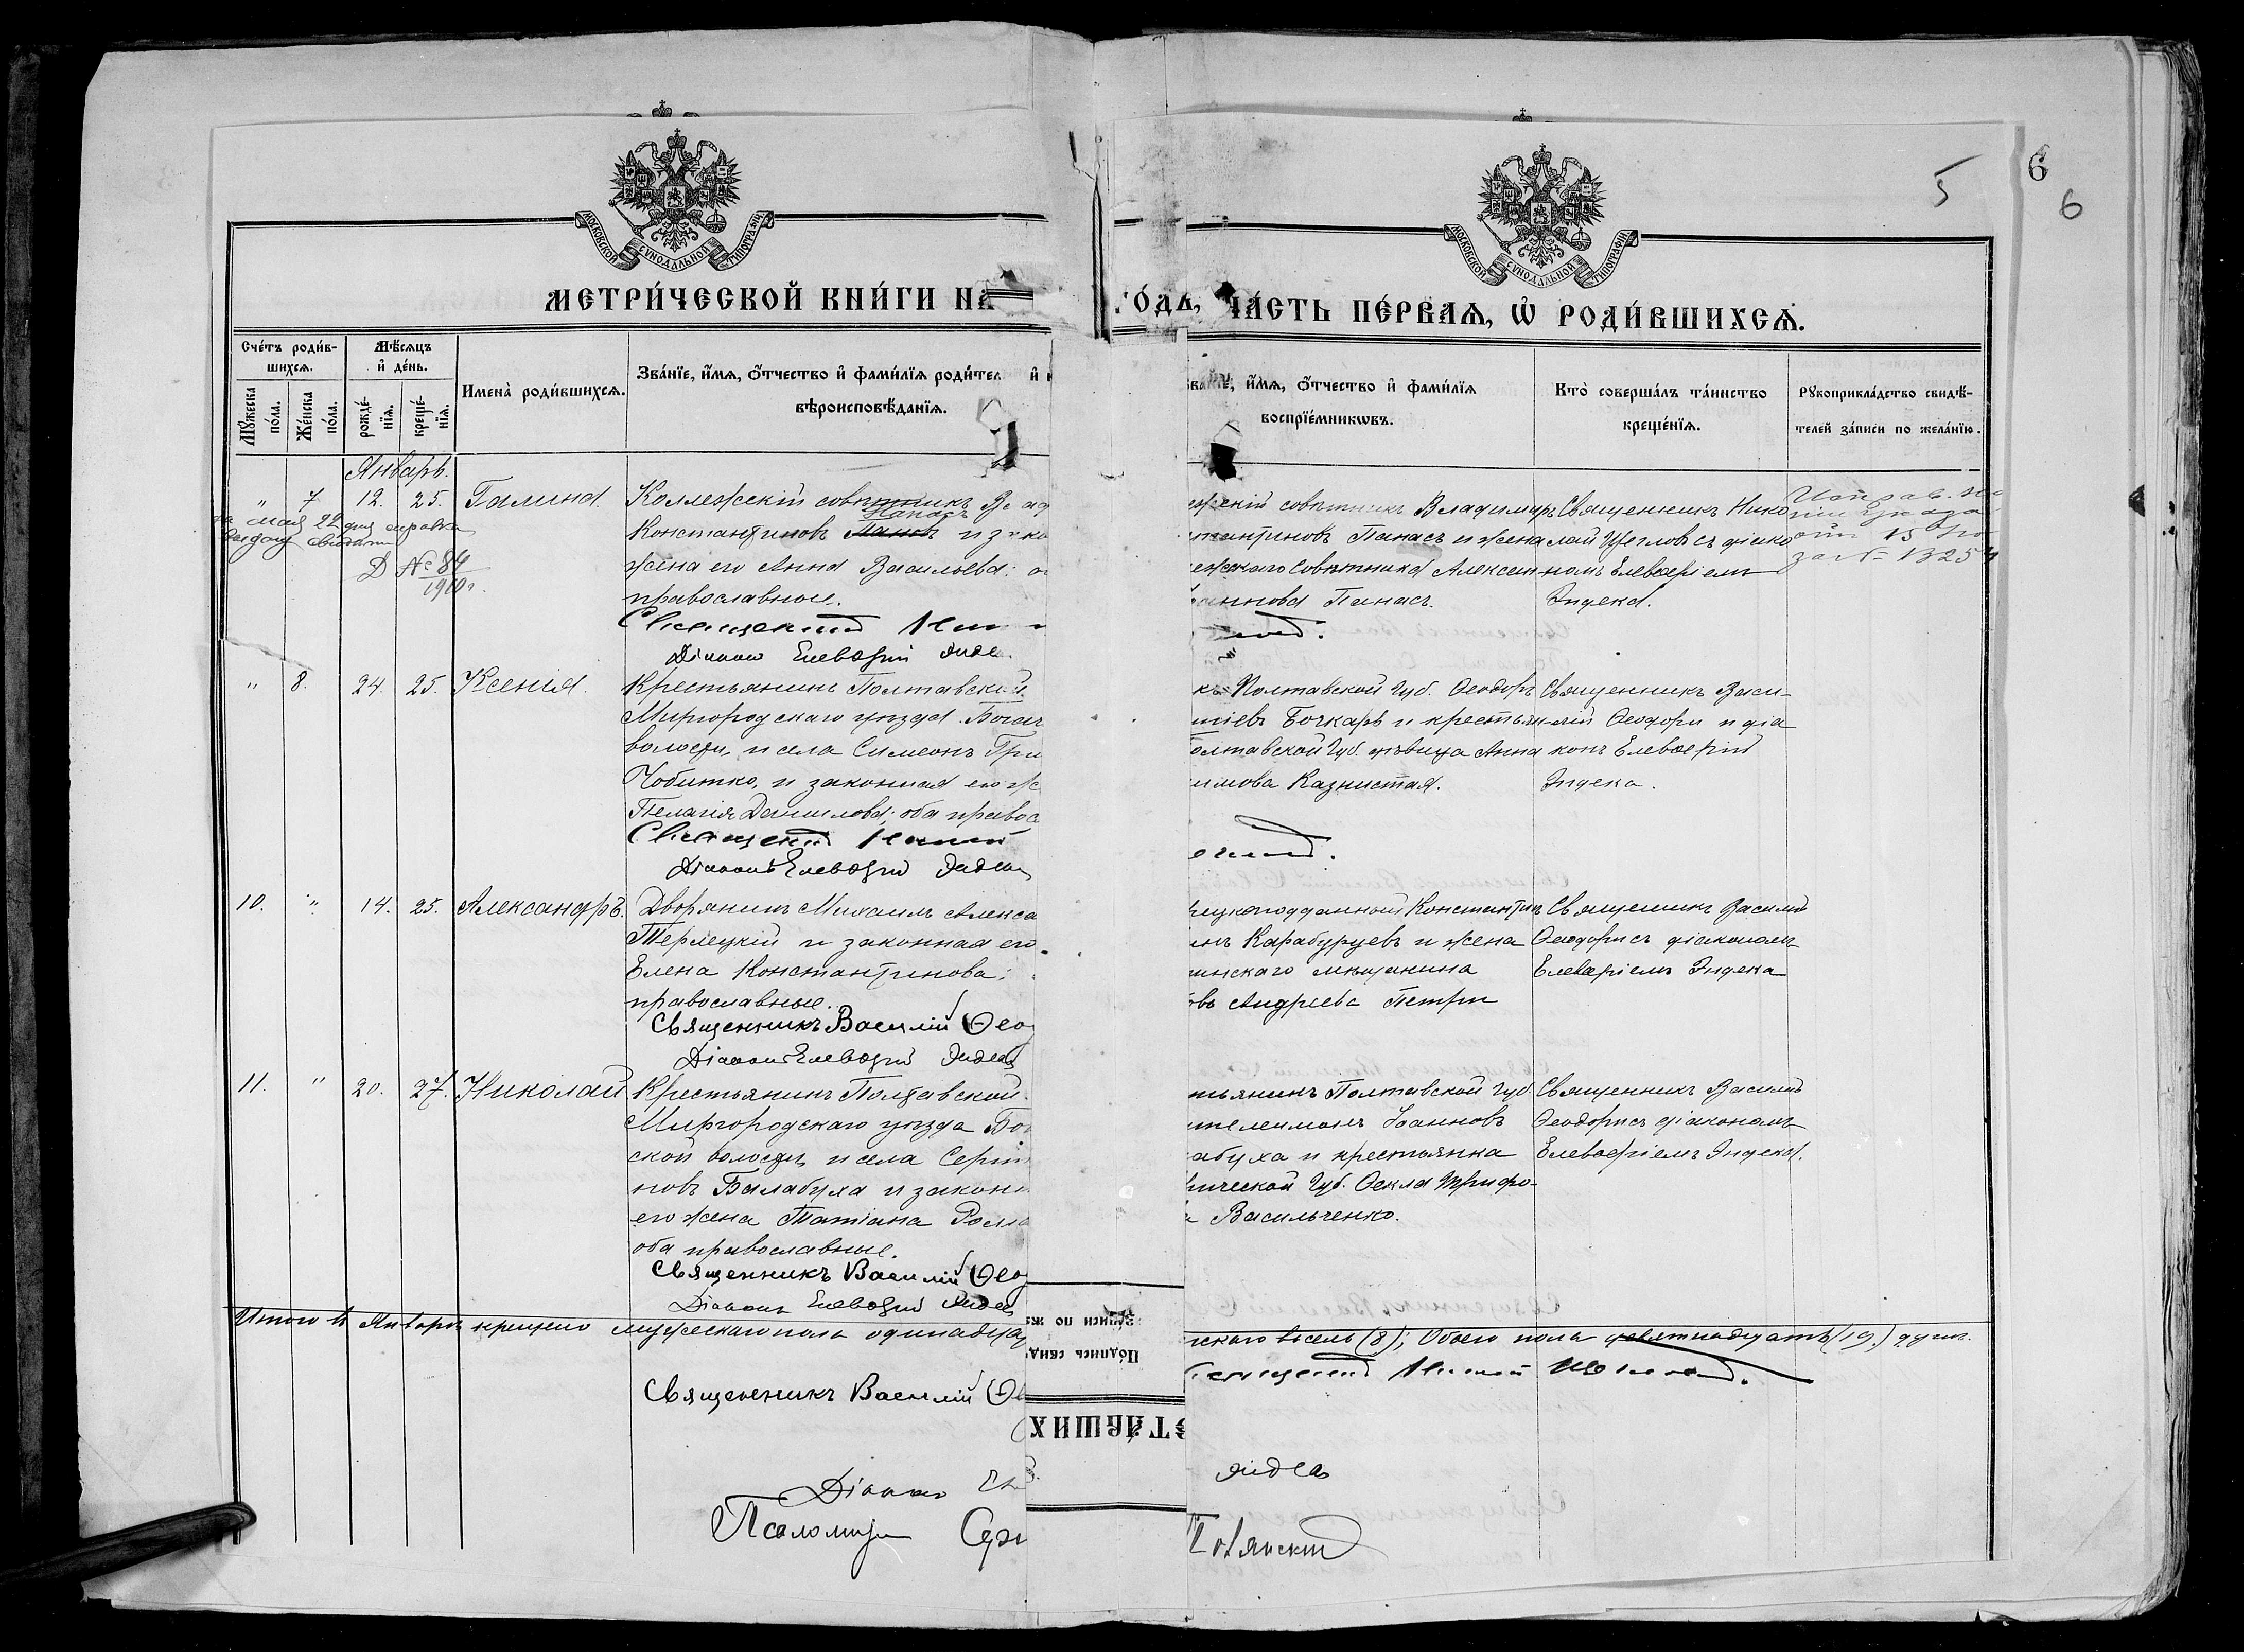 5
6
6
МОСКОВСКОЙ СѴНОДАЛЬНОЙ ТИПОГРАФІИ
МОСКОВСКОЙ СѴНОДАЛЬНОЙ ТИПОГРАФІИ
МЕТРИ́ЧЕСКОЙ КНИ́ГИ НА
ГО́ДЪ, ЧА́СТЬ ПЕ́РВАѦ, Ѡ РОДИ́ВШИХСѦ.
Сче́тъ роди́в-
шихсѧ.
Мꙋжеска
по́ла.
Же́нска
по́ла.
Мѣ́сѧцъ
и҆ де́нь.
рожде́-
нїѧ.
креще́-
нїѧ.
Имена̀ роди́вшихсѧ.
Зва́нїе, и҆́мѧ, ѻ҆́тчество и҆ фами́лїѧ роди́тел и҆
вѣроисповѣ́данїѧ.
зва́нїе, и҆́мѧ, ѻ҆́тчество и҆ фами́лїѧ
воспрїе́мникѡвъ.
Кто̀ соверша́лъ та́инство
креще́нїѧ.
Рꙋкоприкла́дство свидѣ́-
телей за́писи по жела́нїю.
Январь.
" 7 12. 25. Галина.
мая 22 дня справка
Д № 84
1910 г.
Коллежскій совѣтникъ В
Панасъ
Константиновъ Панасъ и зако
жена его Анна Васильева; о
православные.
Священникъ Ни
Діаконъ Елевѳерій Инде
ежскій совѣтникъ Владимиръ
нстантиновъ Панасъ и жена
ежскаго совѣтника Алексан
анова Панасъ.
Священникъ Нико
лай Щегловъ съ діако
номъ Елевѳеріемъ
Индека.
" 8. 24. 25. Ксенія.
Крестьянинъ Полтавской
Миргородскаго уѣзда Богач
волости, и села Симеонъ Гри
Чобитко, и законная его ж
Пелагія Данилова; оба правос
Священникъ Никол
Діаконъ Елевѳерій Индека
къ Полтавской губ. Ѳеодоръ
тіевъ Бочкаръ и крестьян
олтавской губ. дѣвица Анна
имова Казнистая.
Священникъ Васи-
лій Ѳеодори и діа
конъ Елевѳерій
Индека.
10. " 14. 25. Александръ.
Дворянинъ Михаилъ Алекса
Терлецкій и законная его
Елена Константинова;
православные.
Священникъ Василій Ѳео
Діаконъ Елевѳерій Индека
рецкоподданный Константинъ
инъ Карабуруевъ и жена
инскаго мѣщанина
овъ Андреева Петри
Священникъ Василій
Ѳеодори съ діакономъ
Елевѳеріемъ Индека
11. " 20. 27. Николай
Крестьянинъ Полтавской
Миргородскаго уѣзда Бог
ской волости, и села Сергій
новъ Балабуха и законн
его жена Татіана Рома
оба православные.
Священникъ Василій Ѳео
Діаконъ Елевѳерій Индека
тьянинъ Полтавской губ.
нтелеимонъ Іоанновъ
абуха и крестьянка
рической губ. Ѳекла Трифо-
а Васильченко.
Священникъ Василій
Ѳеодори съ діакономъ
Елевѳеріемъ Индека.
Итого въ Январѣ крещено мужескаго пола одинадца
нскаго восемь (8); Обоего пола девятнадцать (19.) душъ.
Священникъ Василій Ѳе
Діаконъ Ел
Индека
Псаломщ
за́писи по же
По́дпись свид